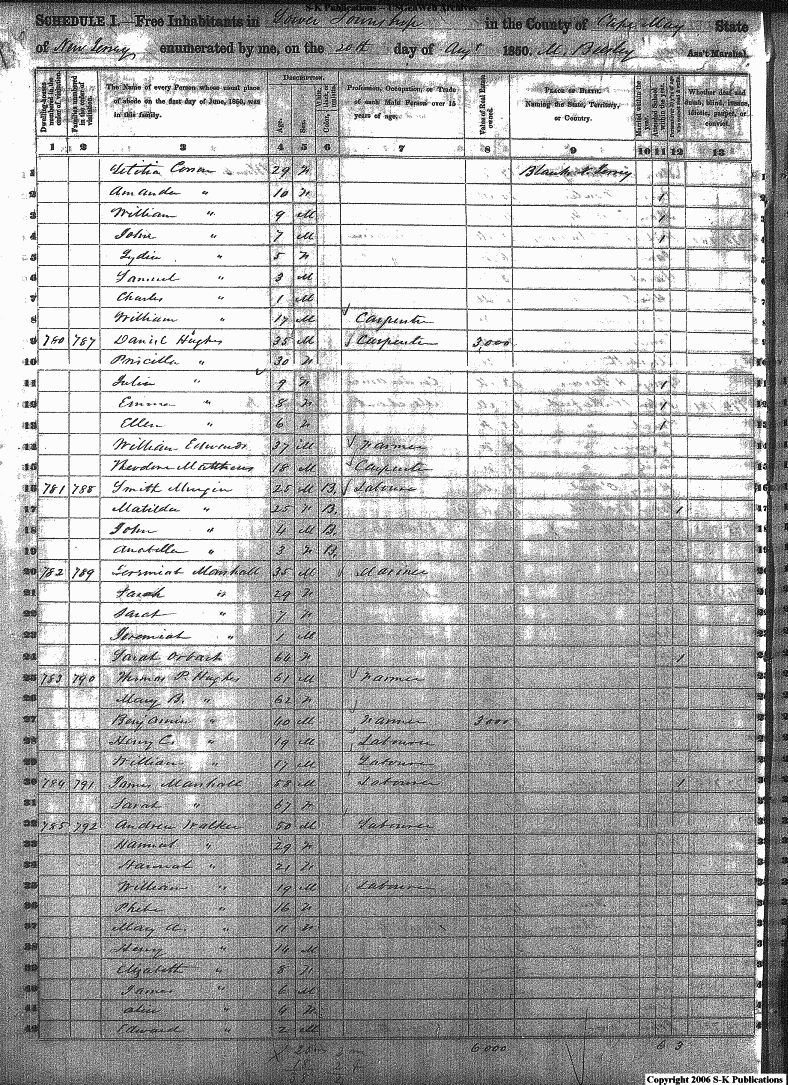 S-K Publications - USGenWeb Archives
SCHEDULE I.—Free Inhabitants in Lower Township in the County of Cape May State
of New Jersey enumerated by me, on the 20th day of Augt 1850. M. Beesly Ass't Marshal.
Dwelling-houses numbered in the order of visitation.
Families numbered in the order of visitation.
The Name of every Person whose usual place of abode on the first day of June, 1850, was in this family.
Description.
Age.
Sex.
Color, White, black, or mulatto.
Profession, Occupation, or Trade of each Male Person over 15 years of age.
Value of Real Estate owned.
Place of Birth. Naming the State, Territory, or Country.
Married within the year.
Attended School within the year.
Whether deaf and dumb, blind, insane, idiotic, pauper, or convict.
1 2 3 4 5 6 7 8 9 10 11 12 13
1 Letitia 29 F Blank N. Jersey 1
2 Amanda " 10 F 1 2
3 William " 9 M 1 3
4 John " 7 M 1 4
5 Lydia " 5 F 5
6 Samuel " 3 M 6
7 Charles " 1 M 7
8 William " 17 M Carpenter 8
9 780 787 Daniel Hughes 35 M Carpenter 3,000 9
10 Priscilla " 30 F 10
11 Julia " 9 F 1 11
12 Emma " 8 F 1 12
13 Ellen " 6 F 1 13
14 William Edwards 37 M Farmer 14
15 Theodore Matthews 18 M Carpenter 15
16 781 788 Smith 25 M B. Labourer 16
17 Matilda " 25 F B. 1 17
18 John " 4 M B. 18
19 Anabella " 3 F B. 19
20 782 789 Jeremiah Marshall 35 M Mariner
21 Sarah " 29 F
22 Sarah " 7 F
23 Jeremiah " 1 M
24 Sarah 64 F 1
25 783 790 Thomas P. Hughes 61 M Farmer
26 Mary B. " 62 F
27 Benjamin " 40 M Farmer 3000
28 Henry C. " 19 M Labourer
29 William " 17 M Labourer
30 784 791 James Marshall 58 M Labourer 1
31 Sarah " 67 F
32 785 792 Andrew Walker 50 M Labourer
33 Hannah " 29 F
34 Hannah " 21 F
35 William " 19 M Labourer
36 Phebe " 16 F
37 Mary A. " 11 F
38 Henry " 14 M
39 Elizabeth " 8 F
40 James " 6 M
41 " 4 F
42 Edward " 2 M
6000 6 3
Copyright 2006 S-K Publications